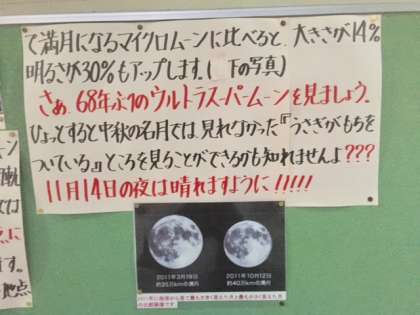 で満月になるマイクロムーンに比べると、大きさが14%
明るさが30%もアップします。(下の写真)
さぁ、68年ぶりのウルトラスーパームーンを見ましょう。
ひょっとすると中秋の名月では、見れなかった『うさぎがもちを
ついている』ところを見ることができるかも知れませんよ???
11月14日の夜は晴れますように!!!!!
ーン
軌
ては
点に
ます。
地点
2011年3月19日
約35万kmの満月
2011年10月12日
約40万kmの満月